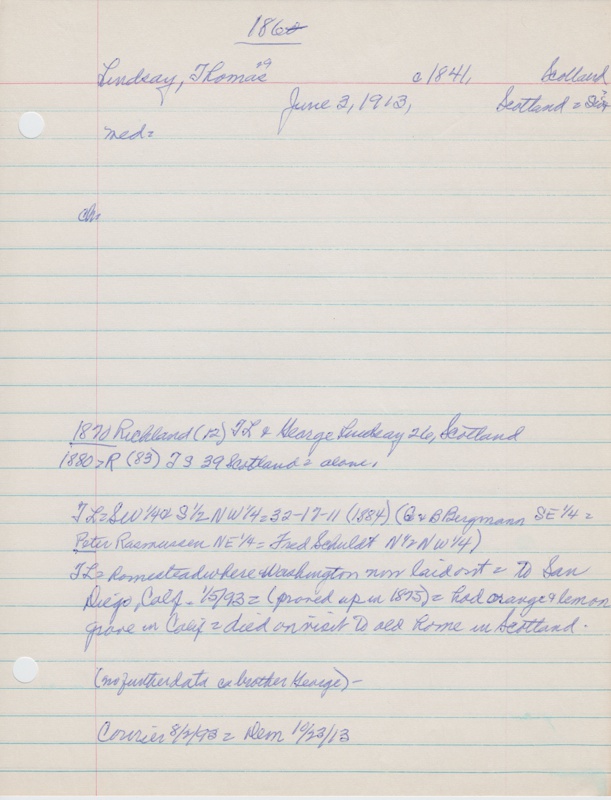 1860
Lindsay, Thomas 29 c1841, Scotland
June 3, 1913, Scotland =
med=
ch
1870 Richland (12) TL & George Lindsay 26, Scotland
1880 = R (83) T S 39 Scotland = alone.
TL = SW 1/4 & S 1/2 NW 1/4 = 32-17-11 (1884) (G & B Bergmann SE 1/4 =
Peter Rasmussen NE 1/4 = Fred Schuldt N 1/2 NW 1/4)
TL = homestead where Washington now laid out = to San
Diego, Calf. 1/5/93 = (proved up in 1875) = had orange & lemon
grove in Calif = died on visit to old home in Scotland.
(no further data on brother George) -
Courier 8/2/93 = Dem 10/23/13